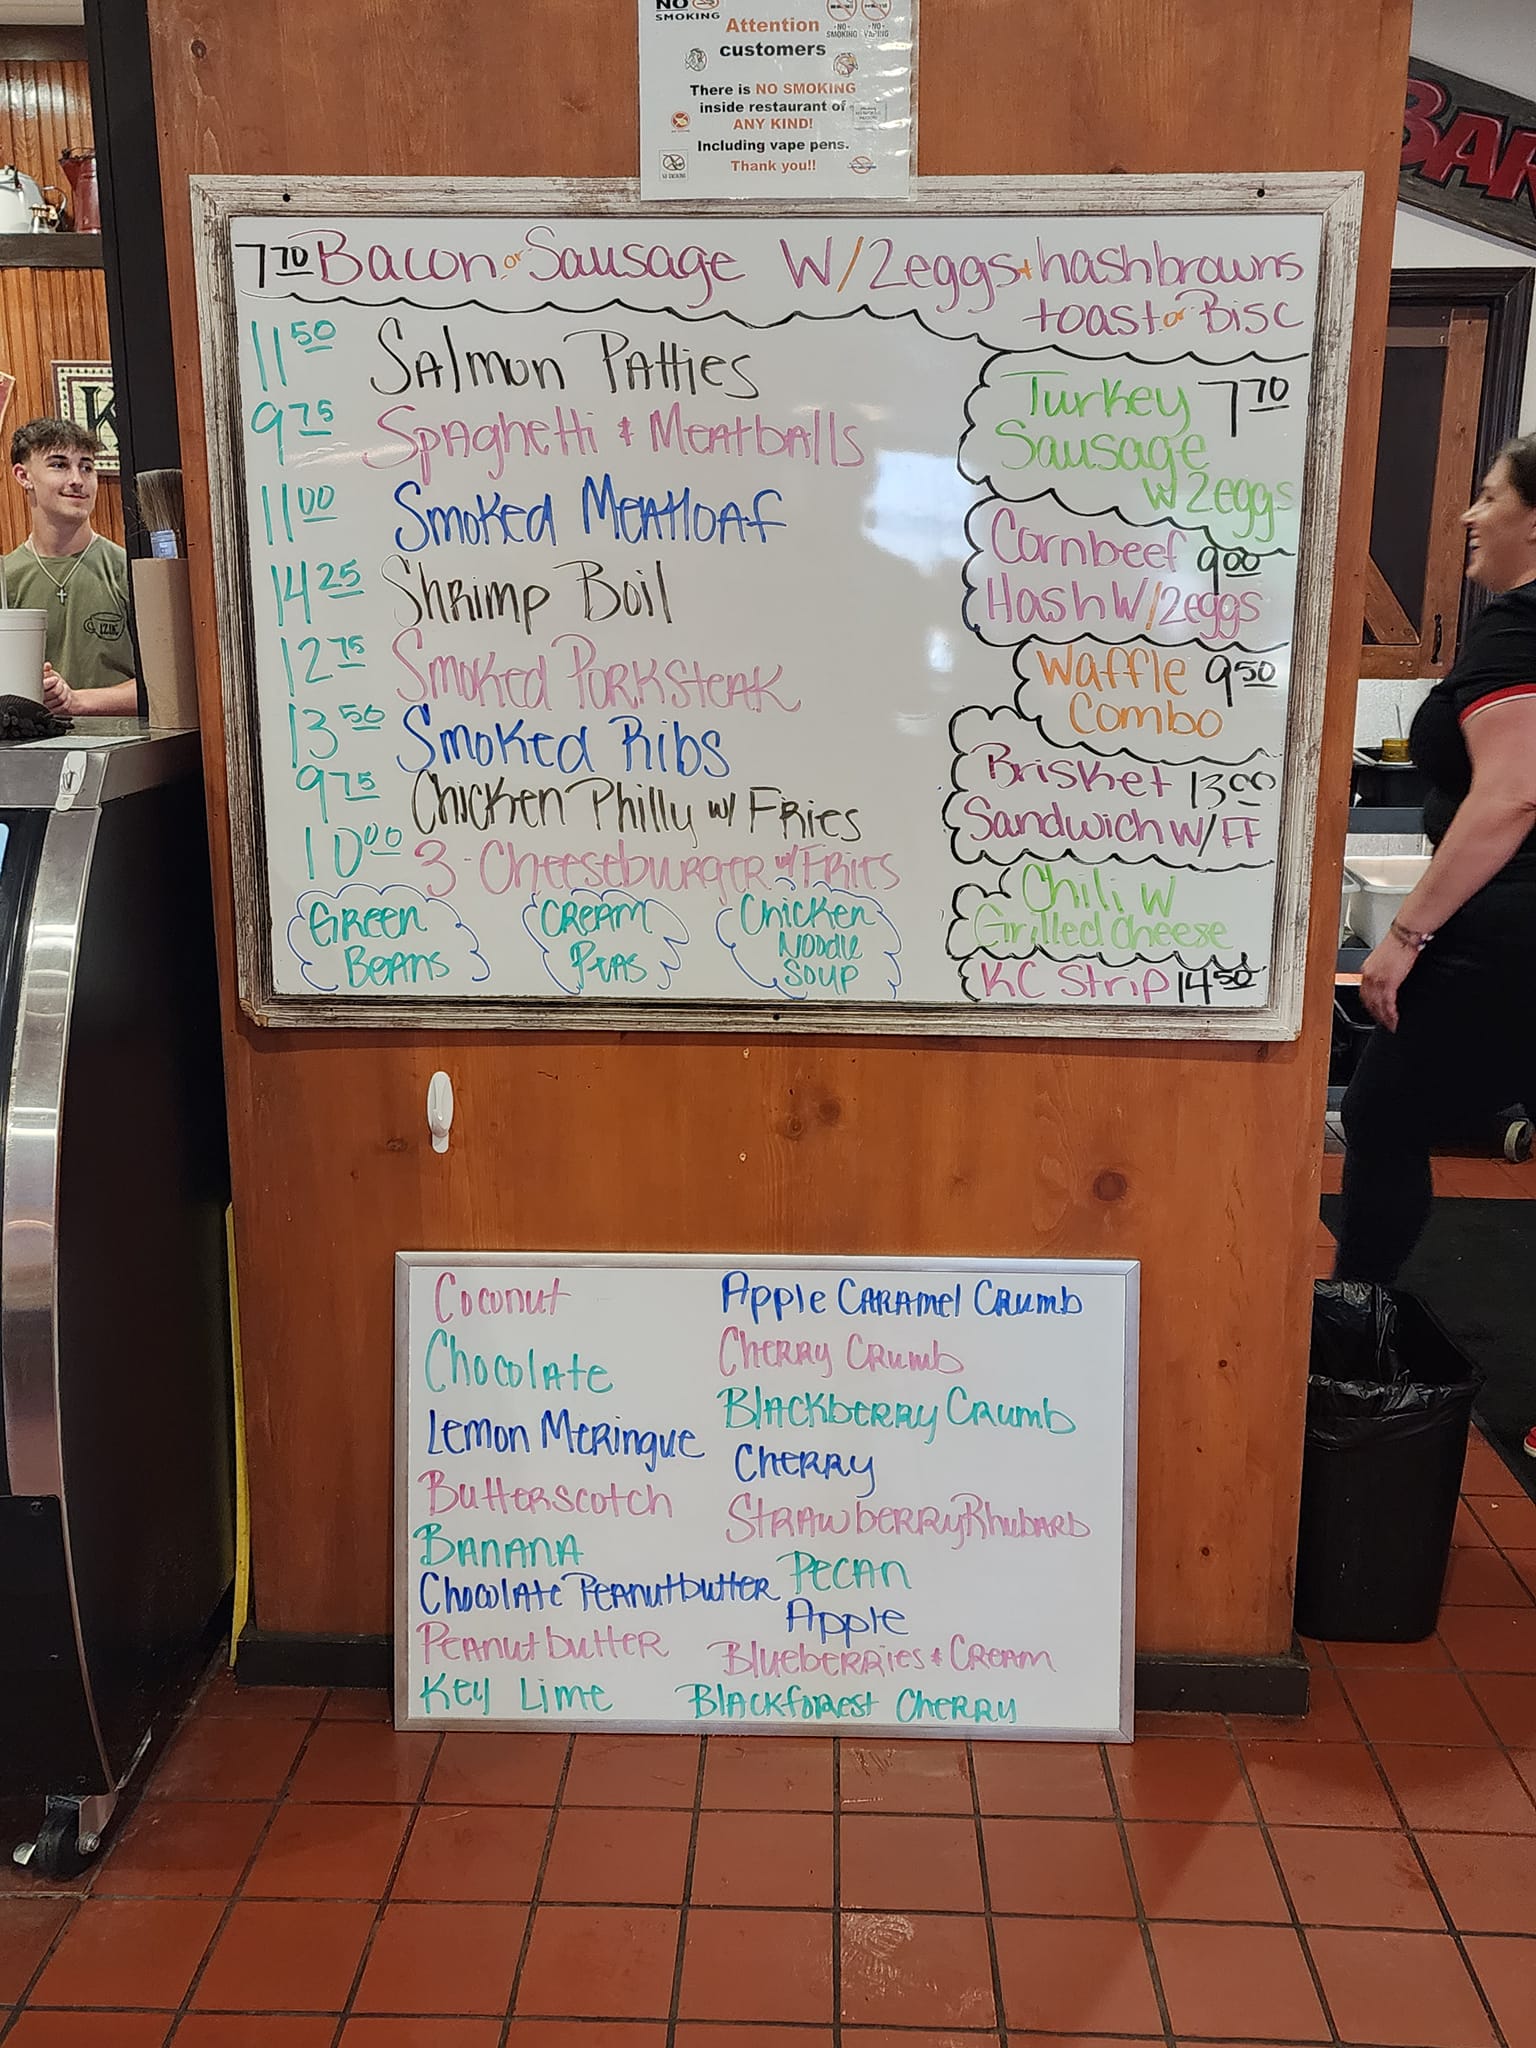 NO
SMOKING
Attention
customers
NO
SMOKING
NO
VAPING
There is NO SMOKING
inside restaurant of
ANY KIND!
Including vape pens.
Thank you!!
BAR
K
7.70 Bacon or Sausage W/2eggs + hashbrowns
toast or Bisc
11.50 Salmon Patties
9.75 Spaghetti & Meatballs
11.00 Smoked Meatloaf
14.25 Shrimp Boil
12.75 Smoked Porksteak
13.50 Smoked Ribs
9.75 Chicken Philly w/ Fries
10.00 3-Cheeseburger w/Fries
Green
Beans
Cream
Peas
Chicken
Noodle
Soup
Turkey 7.70
Sausage
W 2eggs
Cornbeef 9.00
Hash W/2eggs
Waffle 9.50
Combo
Brisket 13.00
Sandwich W/FF
Chili W
Grilled Cheese
KC Strip 14.50
Coconut
Chocolate
Lemon Meringue
Butterscotch
Banana
Chocolate Peanutbutter
Peanutbutter
Key Lime
Apple Caramel Crumb
Cherry Crumb
Blackberry Crumb
Cherry
Strawberry Rhubarb
Pecan
Apple
Blueberries & Cream
Blackforest Cherry